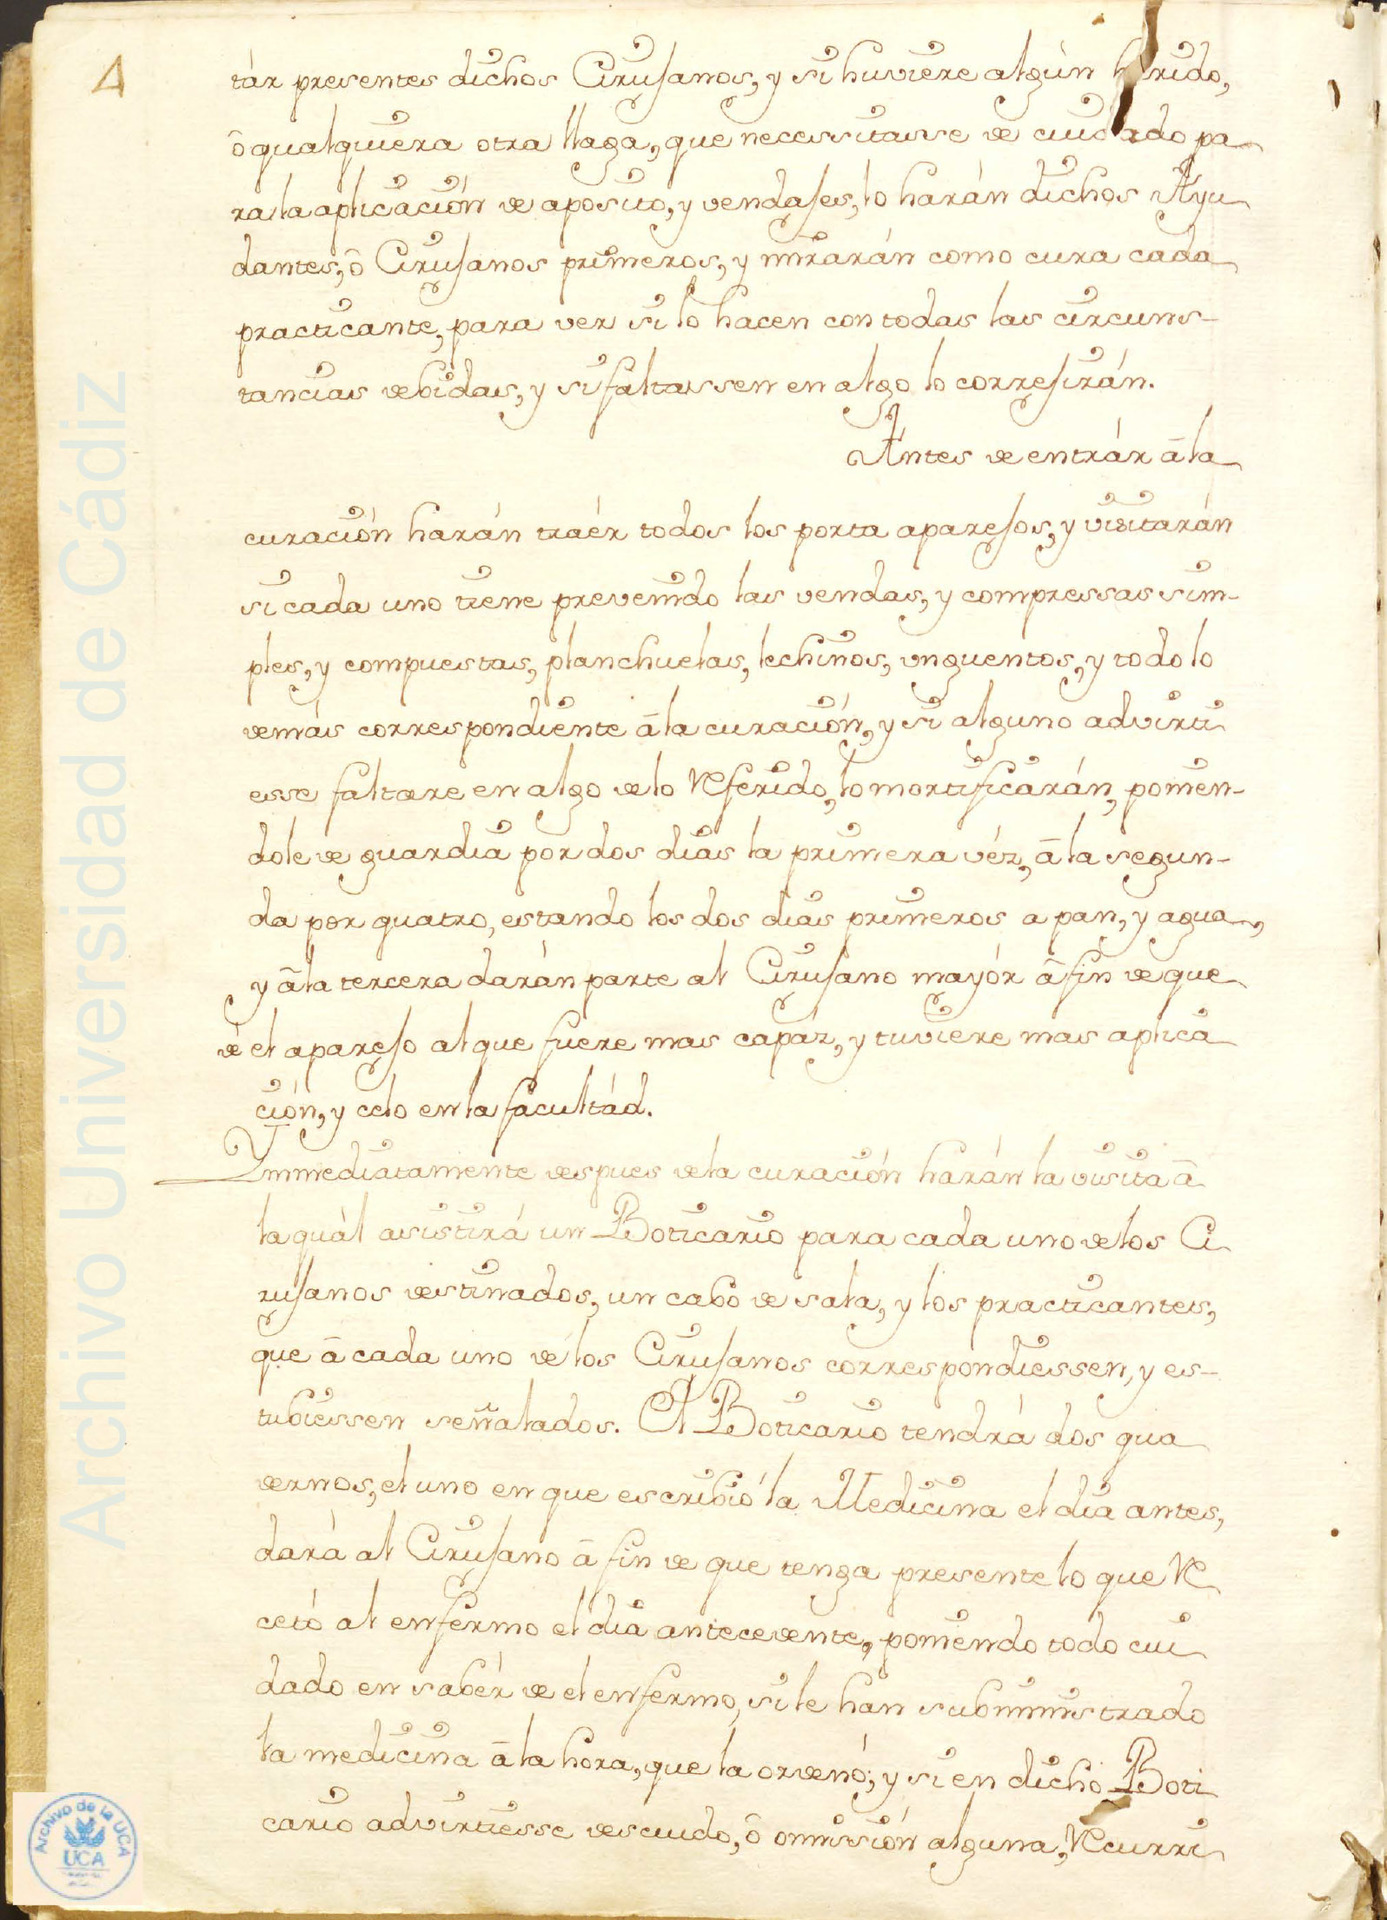 4
tár presentes dichos Cirujanos, y si huviere algún herido,
ô qualquiera otra llaga, que necessitasse de cuidado pa
ra la aplicación de aposito, y vendajes, lo harán dichos Ayu
dantes, ô Cirujanos primeros, y mirarán como cura cada
practicante, para ver si lo hacen con todas las circuns-
tancias debidas, y si faltassen en algo lo corregirán.
Ántes de entrár â la
curación harán traér todos los porta aparejos, y visitarán
si cada uno tiene prevenido las vendas, y compressas sim-
ples, y compuestas, planchuelas, lechinos, vnguentos, y todo lo
demás correspondiente â la curación, y si alguno advirti
esse faltare en algo de lo Referido, lo mortificarán, ponien-
dole de guardia por dos dias la primera véz, â la segun-
da por quatro, estando los dos dias primeros a pan, y agua,
y â la tercera darán parte al Cirujano mayór â fin de que
dé el aparejo al que fuere mas capáz, y tuviere mas aplica
ción, y celo en la facultád.
Ymmediatamente despues de la curación harán la visita â
la quál asistirá un Boticario para cada uno de los Ci
rujanos destinados, un cabo de sala, y los practicantes,
que â cada uno de los Cirujanos correspondiessen, y es-
tubiessen señalados. El Boticario tendrá dos qua
dernos, el uno en que escribió la Medicina el dia antes,
dará al Cirujano â fin de que tenga presente lo que Re
cetó al enfermo el dia antecedente, poniendo todo cui
dado en sabér de el enfermo, si le han subministrado
la medicina â la hora, que la ordenó; y si en dicho Boti
cario advirtiesse descuido, ô omissión alguna, Recurri
Archivo Universidad de Cádiz
Archivo de la UCA
UCA